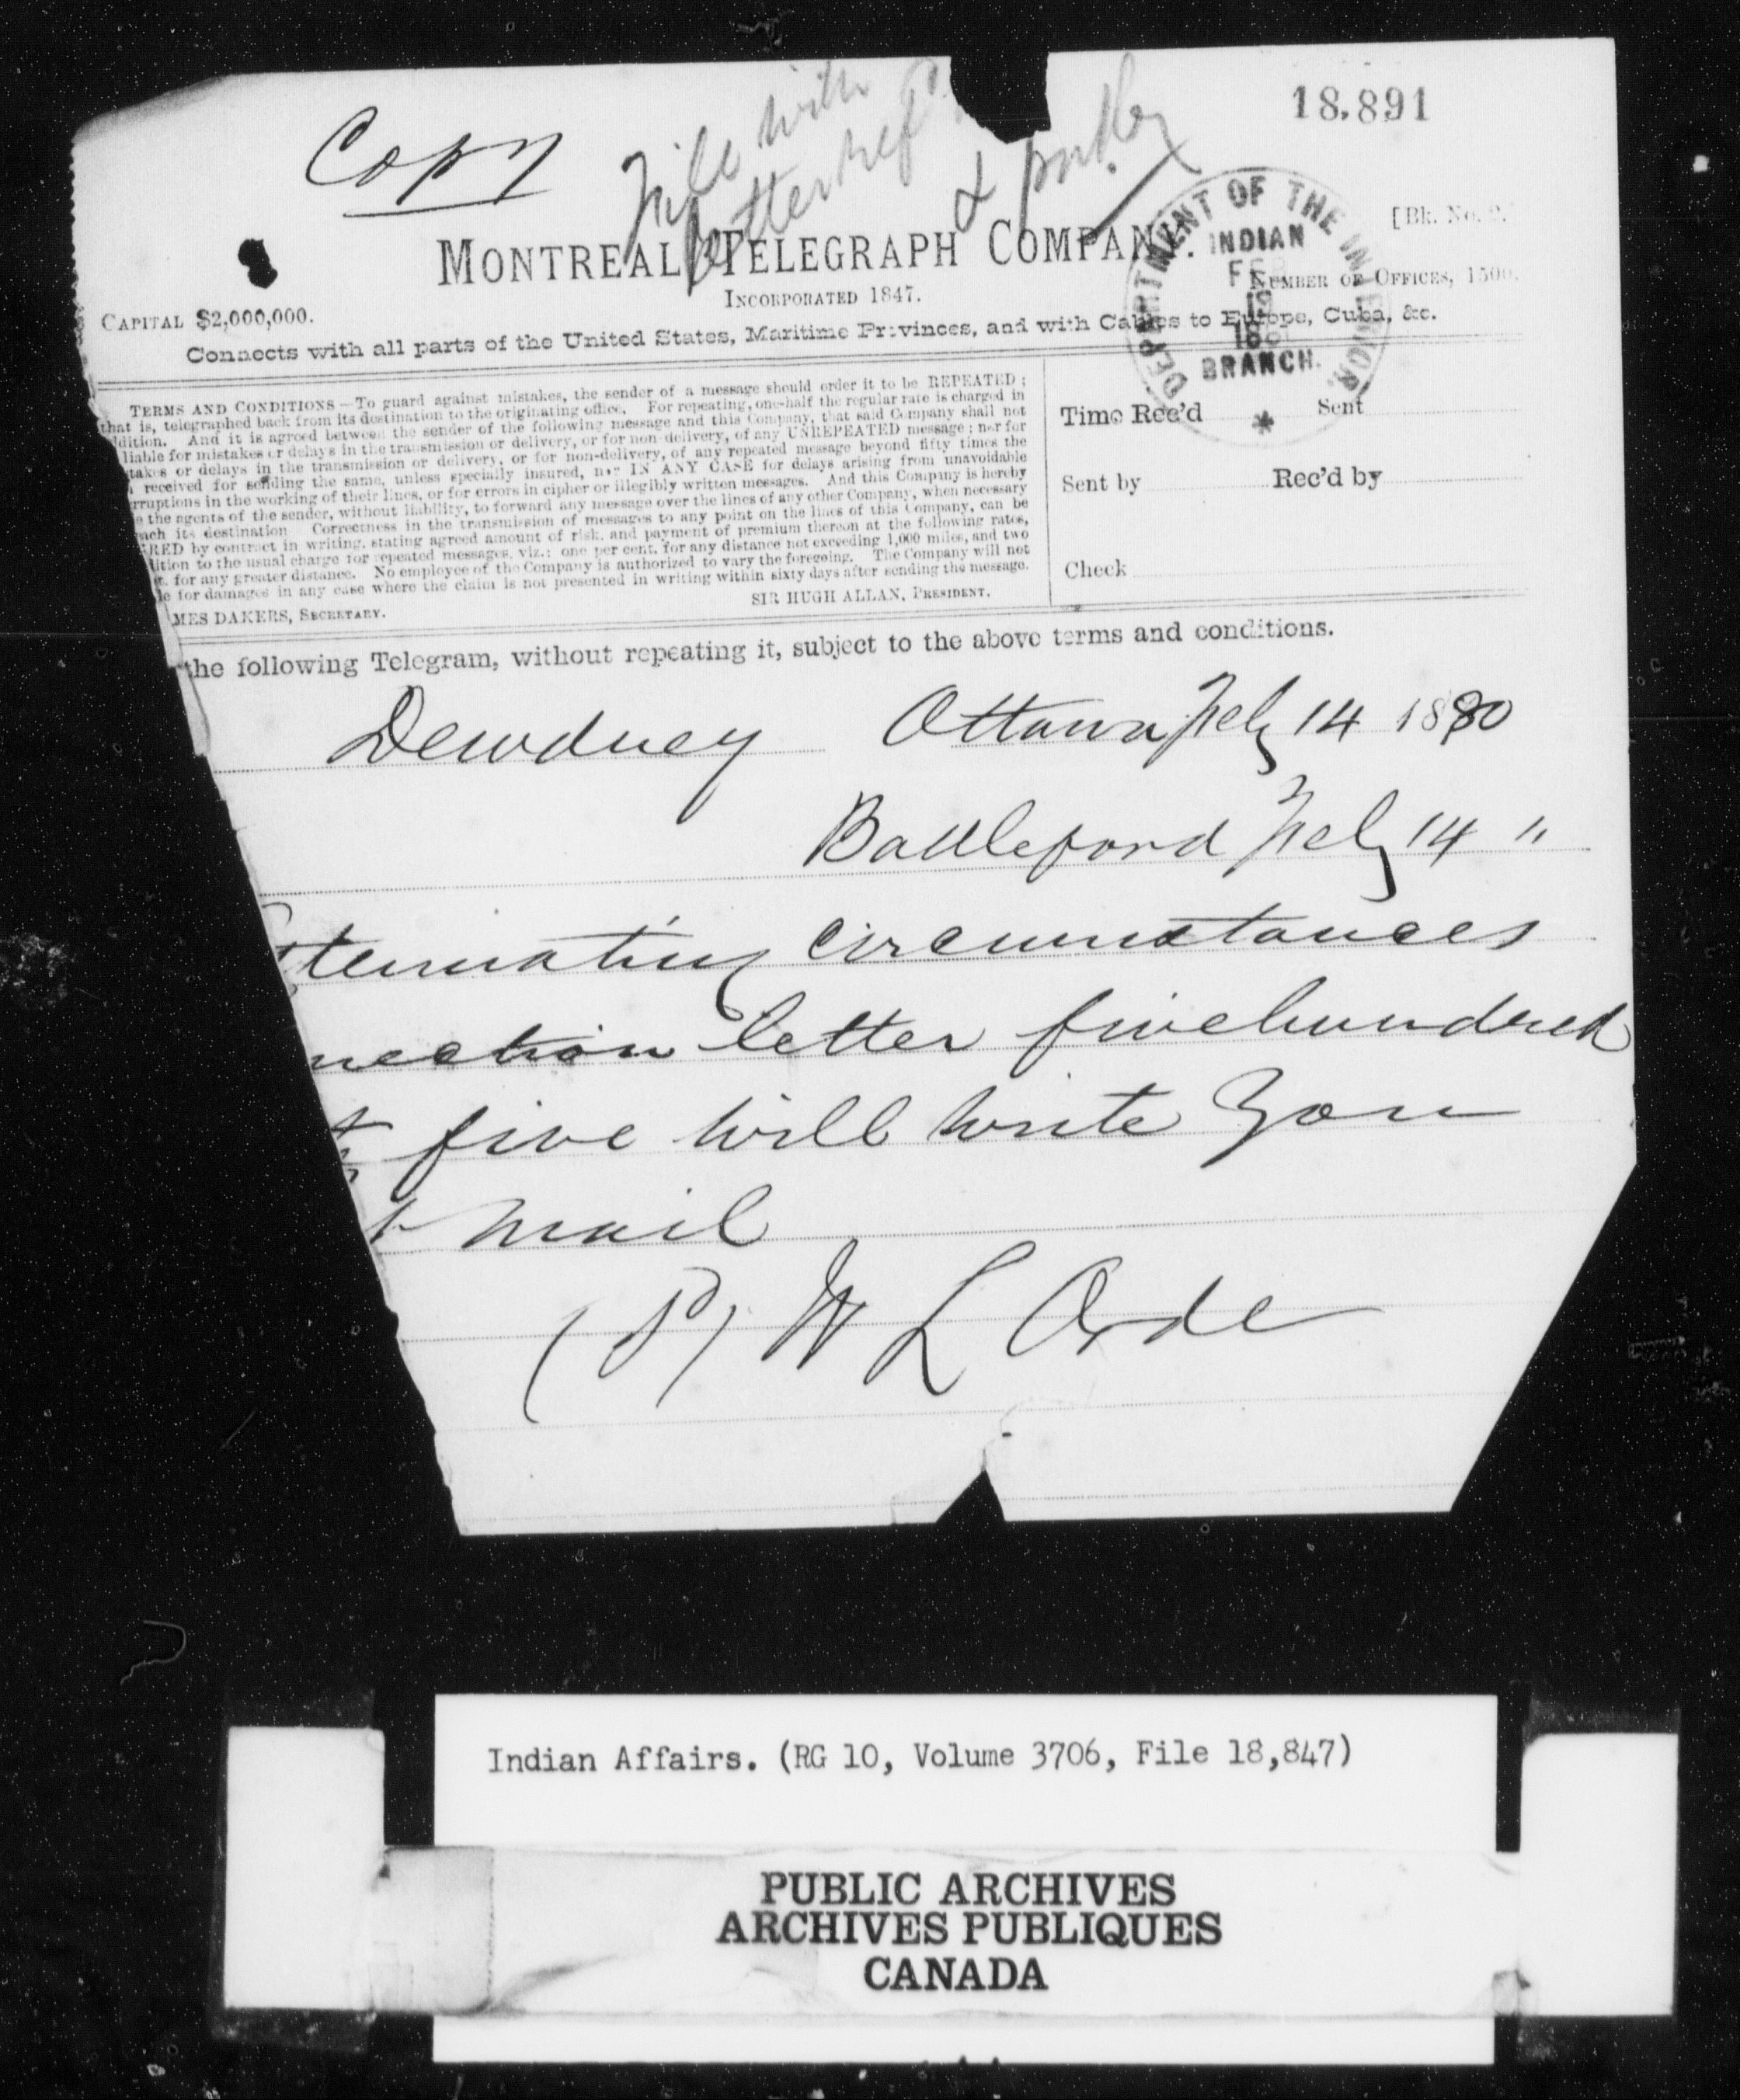 18,891
Copy
File with
letter ref
&
[Bk. No. 2.
MONTREAL TELEGRAPH COMPANY.
DEPARTMENT OF THE INTERIOR.
INDIAN
FEB
19
BRANCH.
INCORPORATED 1847.
CAPITAL $2,000,000.
NUMBER OF OFFICES, 1500.
Connects with all parts of the United States, Maritime Provinces, and with Cables to Europe, Cuba, &c.
TERMS AND CONDITIONS—To guard against mistakes, the sender of a message should order it to be REPEATED;
that is, telegraphed back from its destination to the originating office. For repeating, one-half the regular rate is charged in
ddition. And it is agreed between the sender of the following message and this Company, that said Company shall not
liable for mistakes or delays in the transmission or delivery, or for non-delivery, of any UNREPEATED message; nor for
takes or delays in the transmission or delivery, or for non-delivery, of any repeated message beyond fifty times the
received for sending the same, unless specially insured, nor IN ANY CASE for delays arising from unavoidable
rruptions in the working of their lines, or for errors in cipher or illegibly written messages. And this Company is hereby
e the agents of the sender, without liability, to forward any message over the lines of any other Company, when necessary
ach its destination Correctness in the transmission of messages to any point on the lines of this Company, can be
RED by contract in writing, stating agreed amount of risk, and payment of premium thereon at the following rates,
dition to the usual charge for repeated messages, viz.: one per cent. for any distance not exceeding 1,000 miles, and two
t. for any greater distance. No employee of the Company is authorized to vary the foregoing. The Company will not
le for damages in any case where the claim is not presented in writing within sixty days after sending the message.
MES DAKERS, SECRETARY.
SIR HUGH ALLAN, PRESIDENT.
Time Rec'd Sent
Sent by Rec'd by
Check
the following Telegram, without repeating it, subject to the above terms and conditions.
Dewdney Ottawa Feby 14 1880
Battleford Feby 14 "
tenuating circumstances
nection letter fivehundred
ty five will write you
t mail
(S) W L Orde
Indian Affairs. (RG 10, Volume 3706, File 18,847)
PUBLIC ARCHIVES
ARCHIVES PUBLIQUES
CANADA